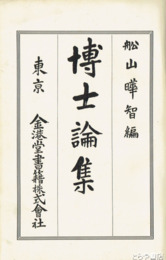 舩山曄智編
博士論集
東京
金港堂書籍株式會社